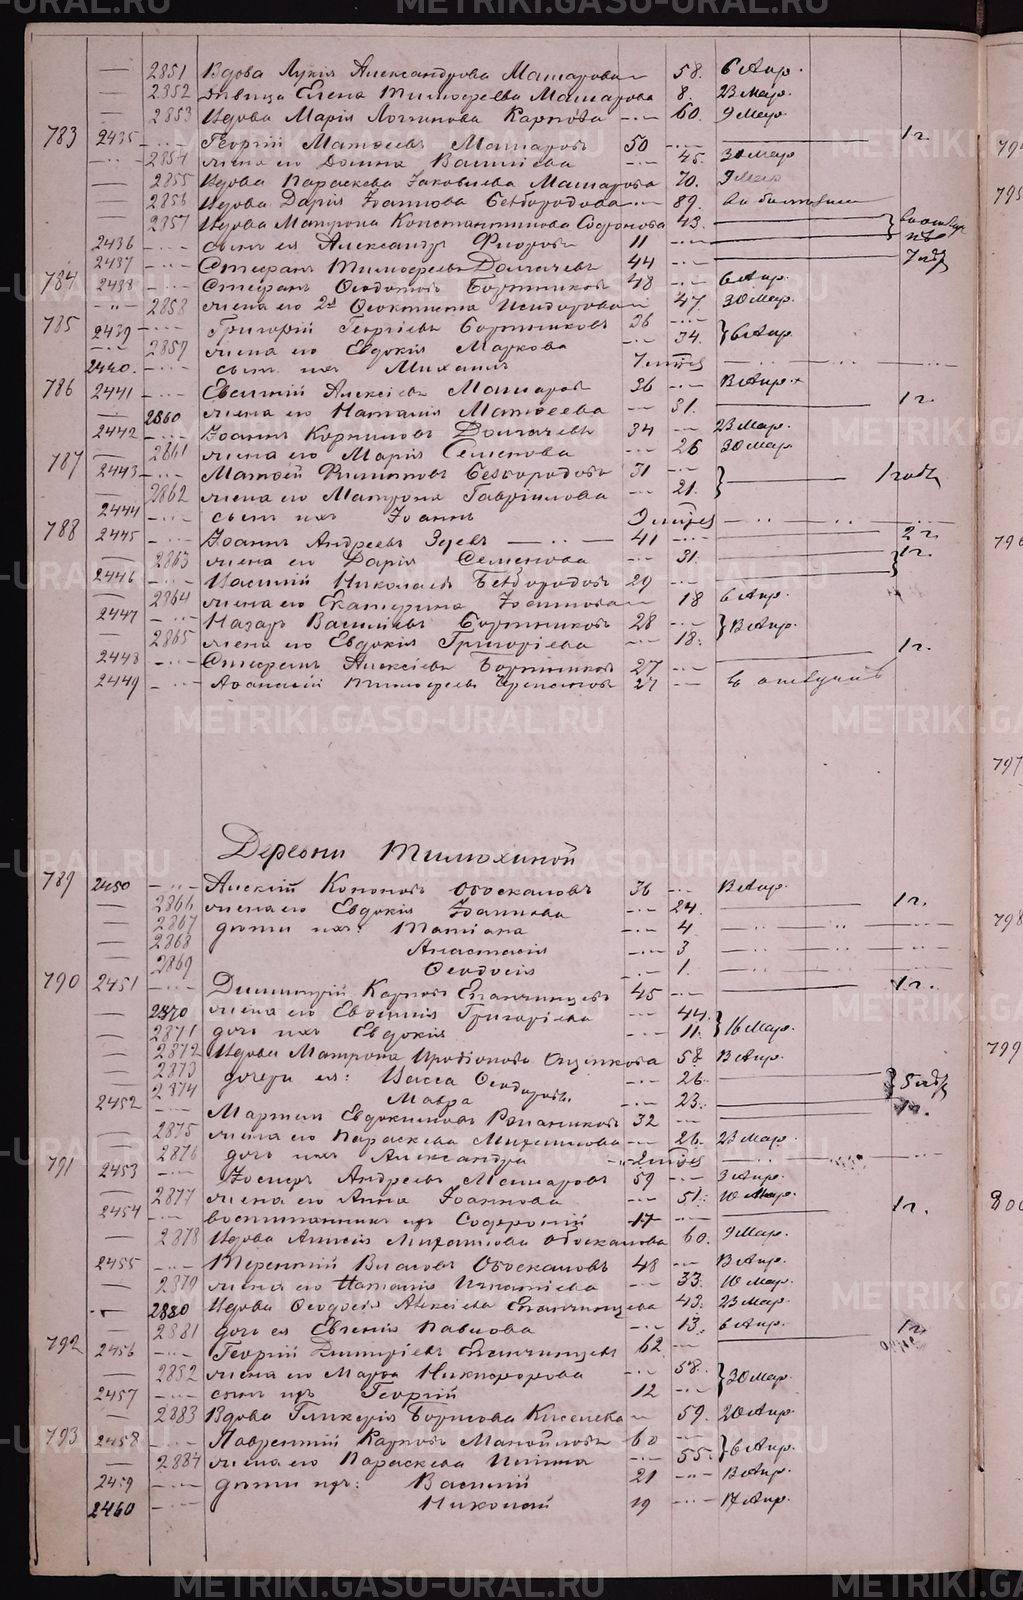 — 2851 Вдова Лукія Александрова Машарова — 58. 6 Апр.
— 2852 дѣвица Елена Тимофеева Машарова 8. 23 Мар.
— 2853 Вдова Марія Логинова Карпова — 60. 9 Мар.
783 2435 — Георгій Матѳеевъ Машаровъ 50 — 1 г.
— 2854 жена его Домна Василіева — 45. 30 Мар
— 2855 Вдова Параскева Іаковлева Машарова 70. 9 Мар
— 2856 Вдова Дарія Іоаннова Безбородова — 89.
— 2857 Вдова Матрона Константинова 43. —
2436 — сынъ ея Александръ Ѳиоровъ 11 —
2437 — Стефанъ Тимофеевъ Долгачевъ 44 —
784 2438 — Стефанъ Ѳеодотовъ Бортниковъ 48 — 6 Апр.
— 2858 жена его 2я Ѳеоктиста Исидорова 47. 30 Мар.
785 2439 — Григорій Георгіевъ Бортниковъ 36 —
— 2859 жена его Евдокія Маркова — 34. } 6 Апр
2440. — сынъ ихъ Михаилъ 7 —
786 2441 — Евсигній Алексіевъ Машаровъ 36 — 13 Апр.
— 2860 жена его Наталія Матѳеева — 31. — 1 г.
2442 — Іоаннъ Корниловъ Долгачевъ 34 — 23 Мар.
— 2861 жена его Марія Семенова — 26 30 Мар
787 2443 — Матѳей Филиповъ Безбородовъ 31 —
— 2862 жена его Матрона Гавріилова — 21. } — 1 годъ
2444 — сынъ ихъ Іоаннъ 9 —
788 2445 — Іоаннъ Андреевъ Зуевъ — 41 — 2 г.
— 2863 жена его Дарія Семенова — 31. — 1 г.
2446 — Василій Николаевъ Безбородовъ 29 —
— 2864 жена его Екатерина Іоаннова — 18 6 Апр.
2447 — Назаръ Василіевъ Бортниковъ 28 —
— 2865 жена его Евдокія Григоріева — 18. } 13 Апр.
2448 — Стефанъ Алексіевъ Бортниковъ 27 — 1 г.
2449 — Аѳанасій Тимофеевъ 27 —
Деревни Тимохиной
789 2450 — Алексій Кононовъ Обоскаловъ 36 — 13 Апр.
— 2866 жена его Евдокія Іоаннова — 24. — 1 г.
— 2867 дѣти ихъ: Татіана — 4 —
— 2868 Анастасія — 3 —
— 2869 Ѳеодосія — 1. —
790 2451 — Димитрій Карповъ Епанчинцевъ 45 — 1 г.
— 2870 жена его Евѳимія Григоріева — 44.
— 2871 дочь ихъ Евдокія — 11. } 16 Мар.
— 2872 Вдова Матрона Иродіонова Ощепкова 58. 13 Апр.
— 2873 дочери ея: Васса Ѳеодоров. — 26. —
— 2874 Мавра — 23. — } 5
2452 — Мартинъ Евдокимовъ 32 — 1 г.
— 2875 жена его Параскева Михаилова — 26. 23 Мар.
— 2876 дочь ихъ Александра — 2 —
791 2453 — Іосифъ Андреевъ Машаровъ 59 — 3 Апр.
— 2877 жена его Анна Іоаннова — 51. 10 Мар.
2454 — воспитанникъ ихъ Софроній 17 — 1 г.
— 2878 Вдова Анисія Михаилова Обоскалова 60. 9 Мар.
2455 — Терентій Власовъ Обоскаловъ 48 — 13 Апр.
— 2879 жена его Наталія Игнатіева — 33. 10 Мар.
— 2880 Вдова Ѳеодосія Алексіева Епанчинцева 43. 23 Мар.
— 2881 дочь ея Евгенія Павлова — 13. 6 Апр.
792 2456 — Георгій Димитріевъ Епанчинцевъ 62 — 1 г.
— 2882 жена его Марѳа Никифорова — 58.
2457 — сынъ ихъ Георгій 12 — } 30 Мар.
— 2883 Вдова Гликерія Борисова Киселева — 59. 20 Апр.
793 2458 — Лаврентій Карповъ Манойловъ 60 —
— 2884 жена его Параскева Ильина — 55. } 6 Апр.
2459 — дѣти ихъ: Василій 21 — 13 Апр.
2460 — Николай 19 — 14 Апр.